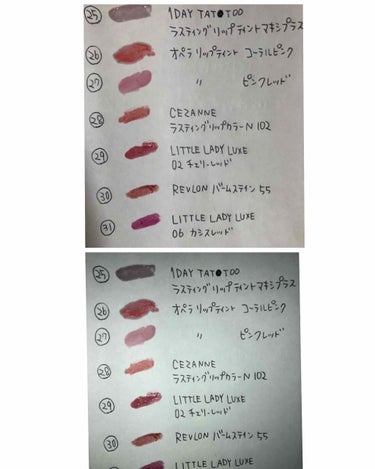 25 1DAY TAT●TOO
ラスティングリップティントマキシプラス
26 オペラ リップティント コーラルピンク
27 〃 ピンクレッド
28 CEZANNE
ラスティングリップカラーN 102
29 LITTLE LADY LUXE
02 チェリーレッド
30 REVLON バームステイン 55
31 LITTLE LADY LUXE
06 カシスレッド
25 1DAY TAT●TOO
ラスティングリップティントマキシプラス
26 オペラ リップティント コーラルピンク
27 〃 ピンクレッド
28 CEZANNE
ラスティングリップカラーN 102
29 LITTLE LADY LUXE
02 チェリーレッド
30 REVLON バームステイン 55
LITTLE LADY LUXE